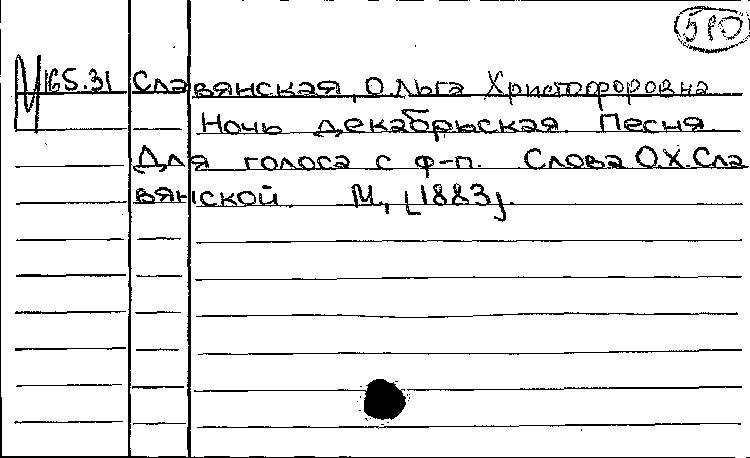 5Р0
М165.31 Славянская, Ольга Христофоровна
Ночь декабрьская. Песня.
Для голоса с ф-п. Слова О.Х. Сла
вянской. М, [1883].